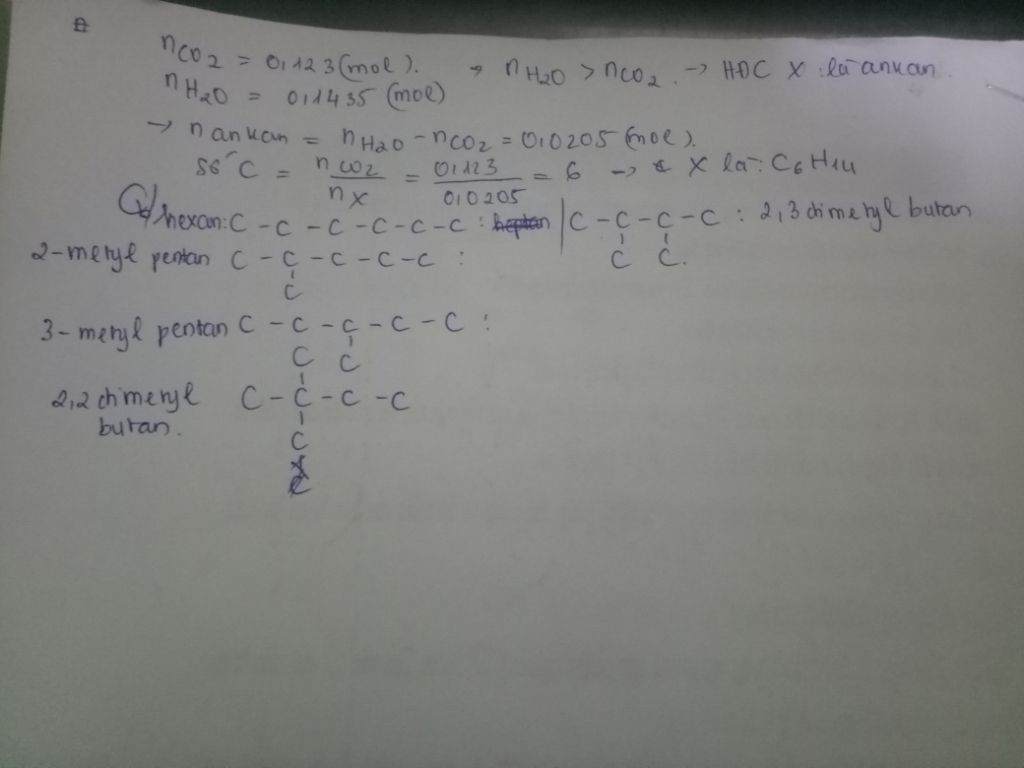 nCO2 = 0,123 (mol). → nH2O > nCO2. → HĐC X là ankan.
nH2O = 0,1435 (mol)
→ n ankan = nH2O - nCO2 = 0,0205 (mol).
số C = nCO2 / nX = 0,123 / 0,0205 = 6 → X là: C6H14
hexan: C - C - C - C - C - C : heptan | C - C - C - C : 2,3 dimetyl butan
C C.
2-metyl pentan C - C - C - C - C :
C
3- metyl pentan C - C - C - C - C :
C C
2,2 dimetyl C - C - C - C
butan.
C